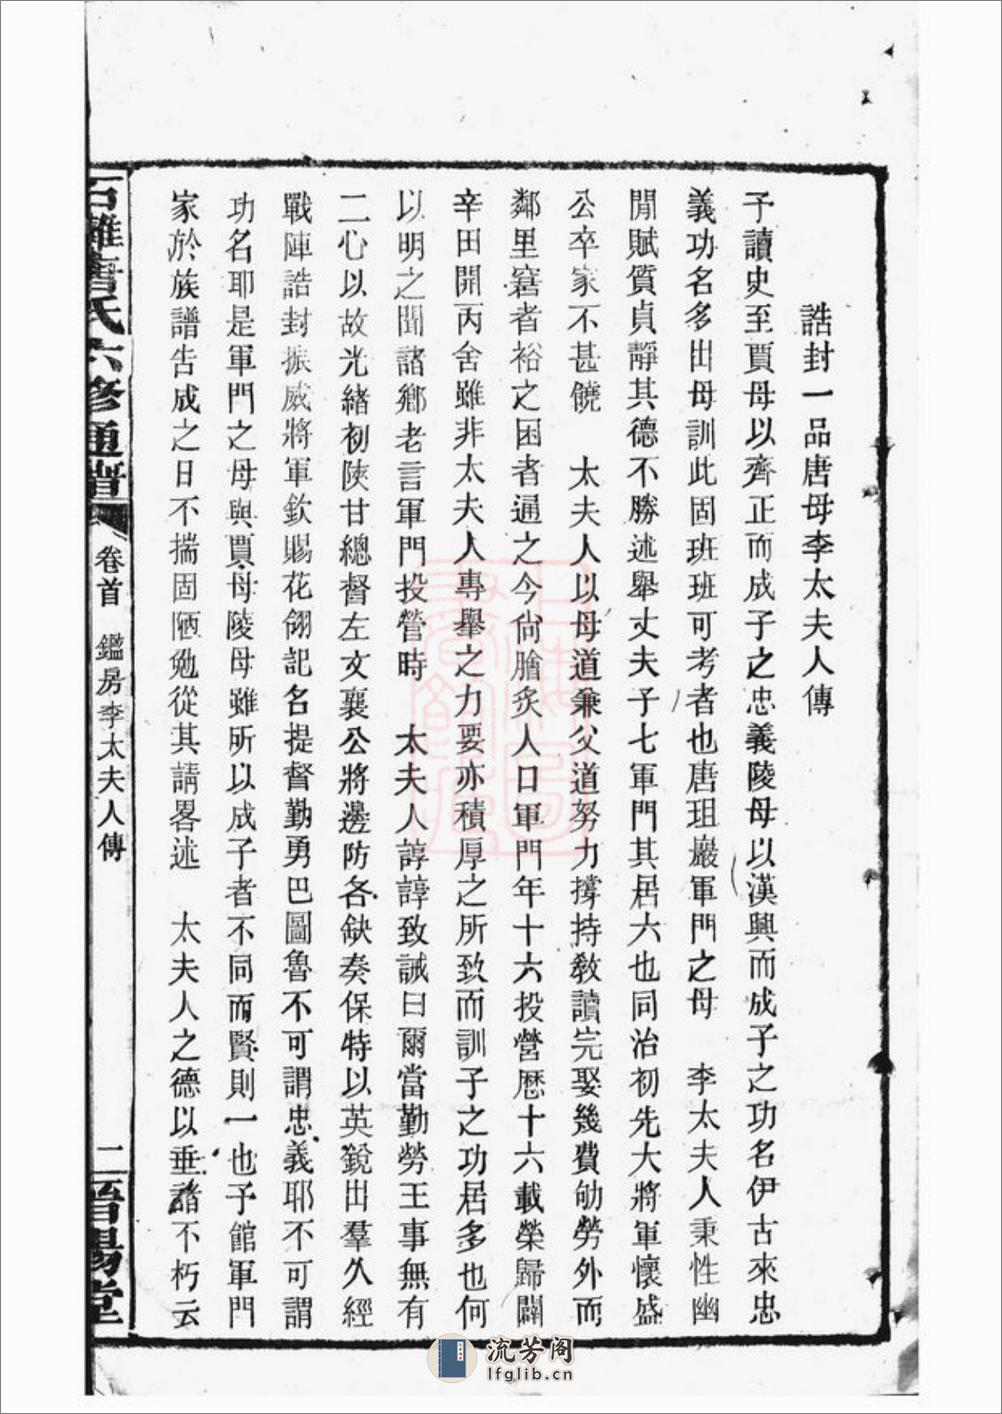 誥封一品唐母李太夫人傳
予讀史至賈母以齊正而成子之忠義陵母以漢興而成子之功名伊古來忠
義功名多出母訓此固班班可考者也唐珇巖軍門之母 李太夫人秉性幽
閒賦質貞靜其德不勝述舉丈夫子七軍門其居六也同治初先大將軍懷盛
公卒家不甚饒 太夫人以母道兼父道努力撐持敎讀完娶幾費劬勞外而
鄰里窘者裕之困者通之今尙膾炙人口軍門年十六投營歷十六載榮歸闢
辛田開丙舍雖非太夫人專舉之力要亦積厚之所致而訓子之功居多也何
以明之聞諸鄉老言軍門投營時 太夫人諄諄致誡曰爾當勤勞王事無有
二心以故光緒初陝甘總督左文襄公將邊防各缺奏保特以英銳出羣久經
戰陣誥封振威將軍欽賜花翎記名提督勤勇巴圖魯不可謂忠義耶不可謂
功名耶是軍門之母與賈母陵母雖所以成子者不同而賢則一也予館軍門
家於族譜告成之日不揣固陋勉從其請畧述 太夫人之德以垂諸不朽云
唐氏六修通譜
卷首 鑑房李太夫人傳
二
晉陽堂
流芳阁
lfglib.cn